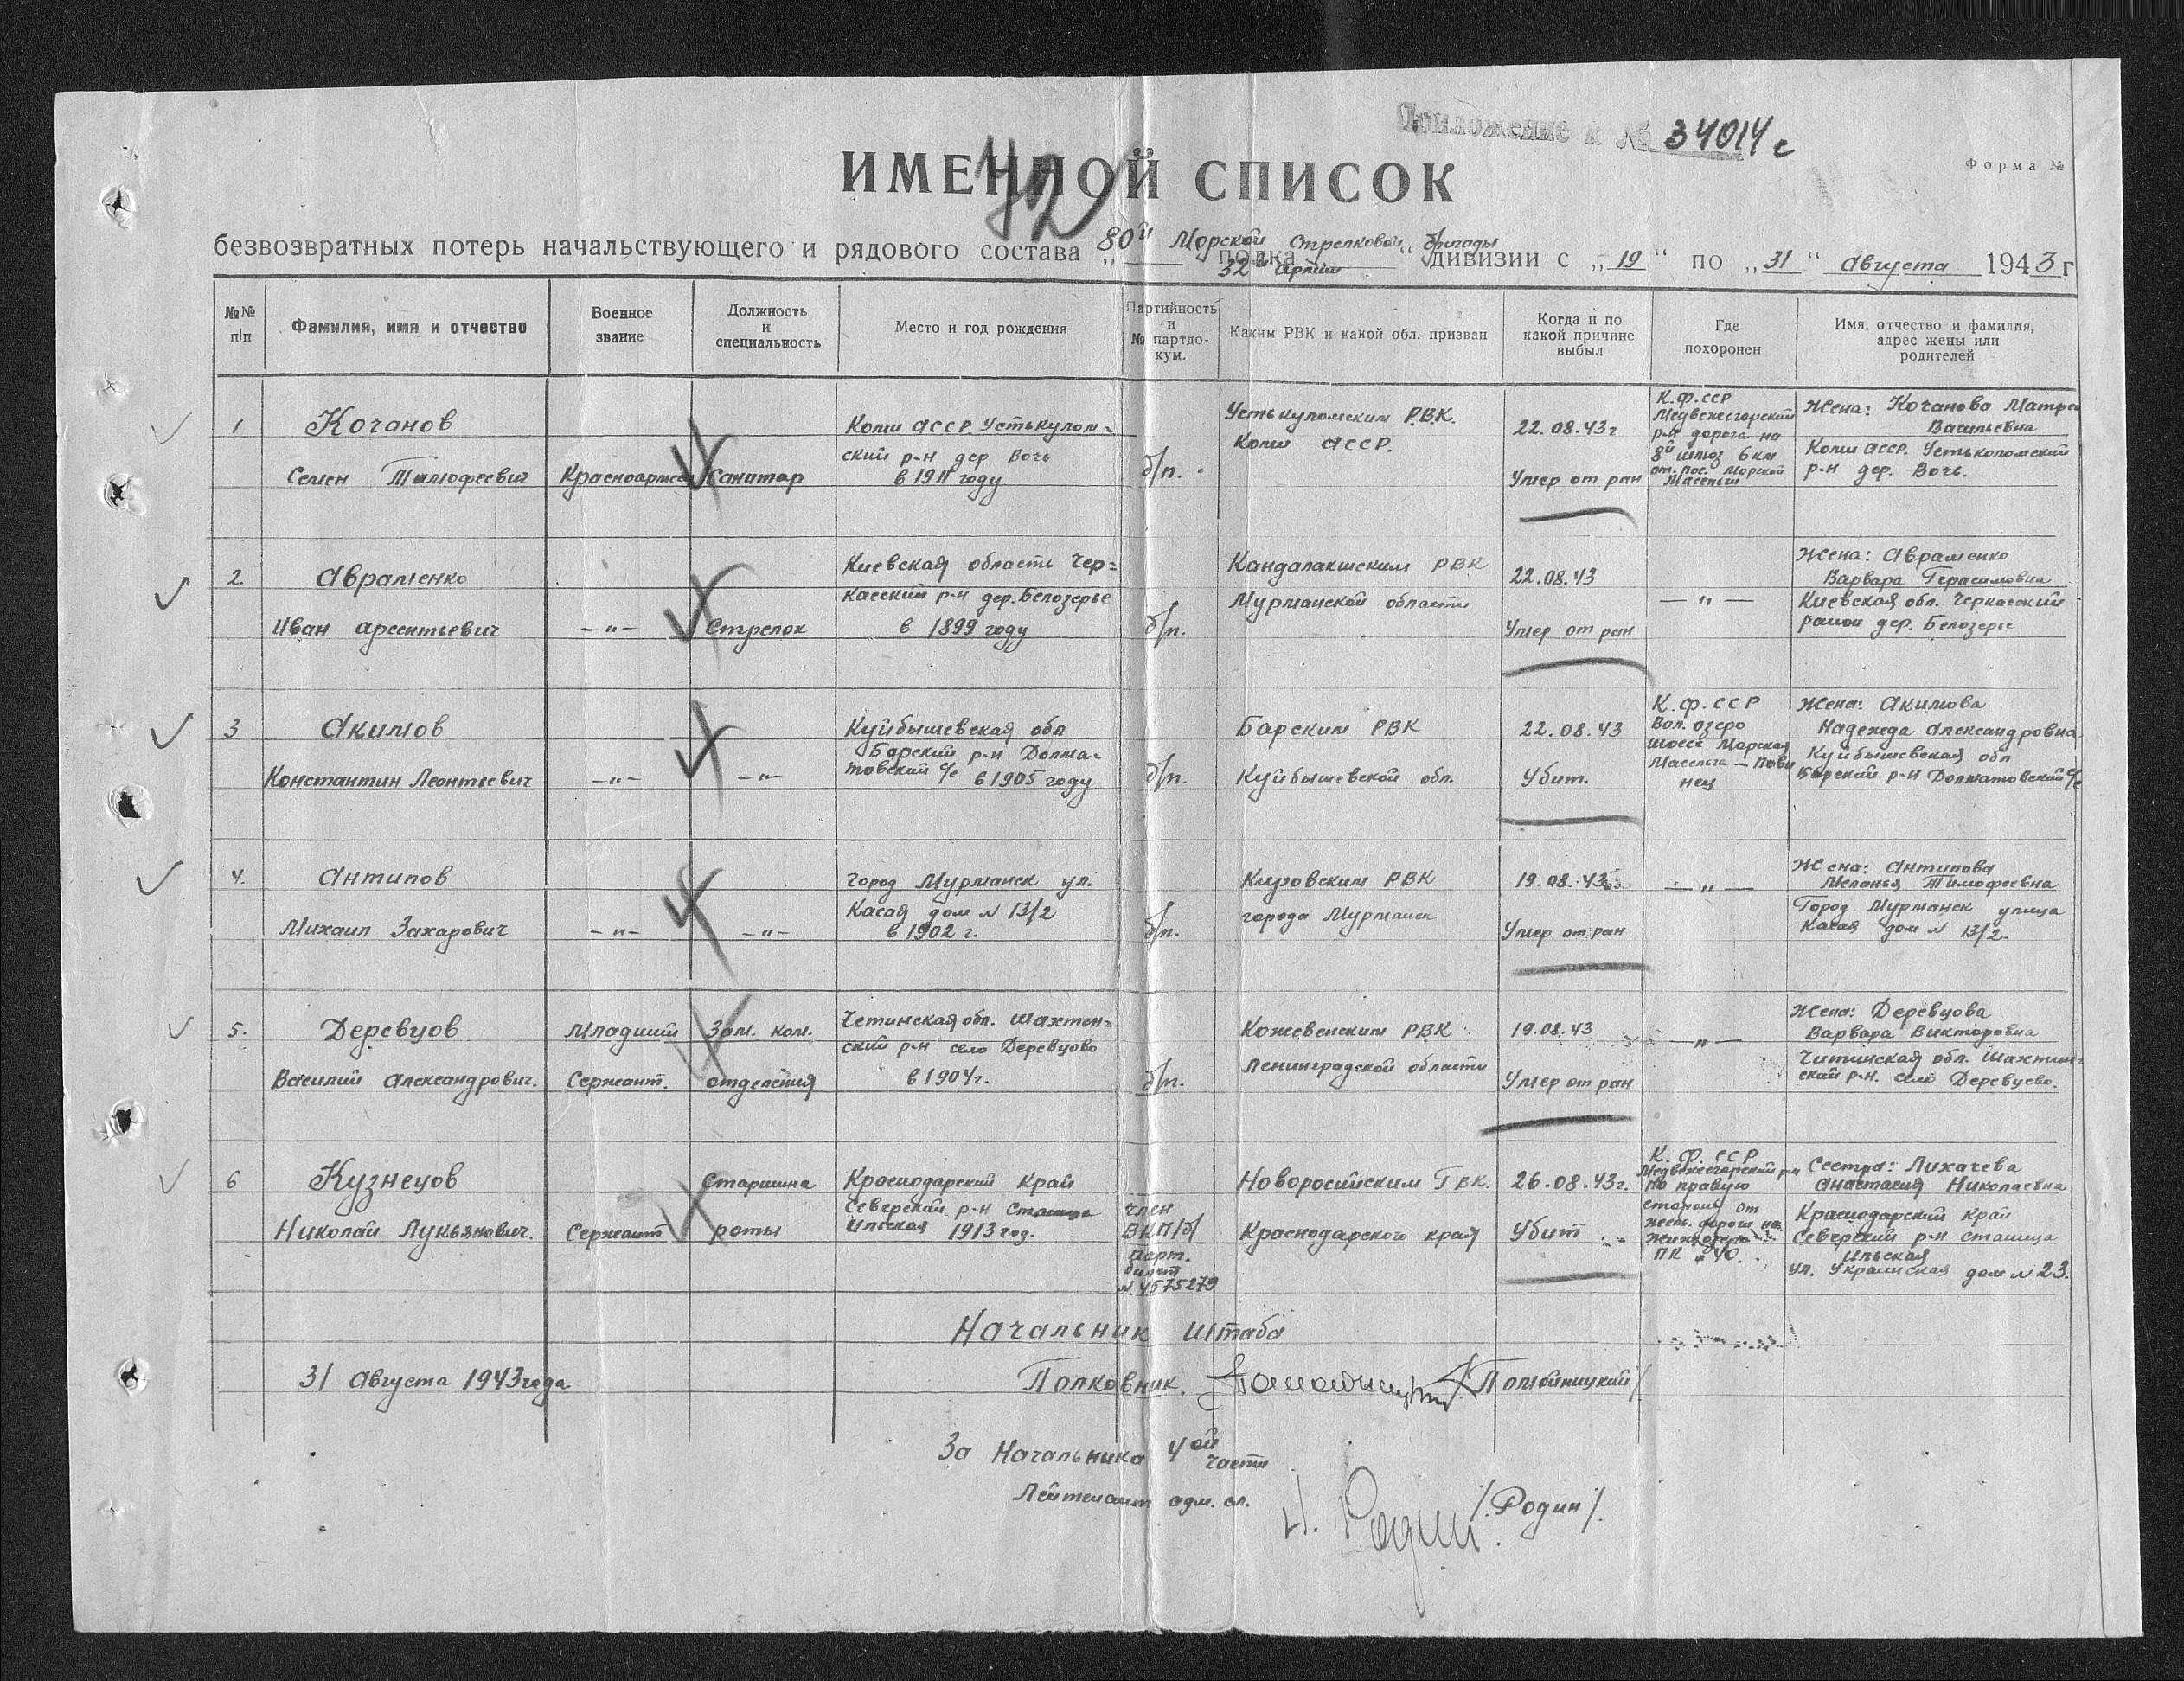 Приложение к № 34014с
Форма №
ИМЕННОЙ СПИСОК
безвозвратных потерь начальствующего и рядового состава „80й Морской Стрелковой бригады
32й армии полка “ дивизии с „19“ по „31“ августа 1943 г
№№ п/п
Фамилия, имя и отчество
Военное звание
Должность и специальность
Место и год рождения
Партийность и № партдо-кум.
Каким РВК и какой обл. призван
Когда и по какой причине выбыл
Где похоронен
Имя, отчество и фамилия, адрес жены или родителей
1
Кочанов
Семен Тимофеевич
Красноармеец
Санитар
Коми АССР. Устькулом-
ский р-н дер Вочь
в 1911 году
б/п.
Устькуломским Р.В.К.
Коми АССР.
22.08.43г
Умер от ран
К.Ф.ССР
Медвежегорский
р-н дорога на
8й шлюз 6 км
от. пос. Морской
Масельги
Жена: Кочанова Матре
Васильевна
Коми АССР. Устьколомский
р-н дер. Вочь.
2.
Авраменко
Иван Арсентьевич
—"—
Стрелок
Киевская область Чер=
касский р-н дер. Белозерье
в 1899 году
б/п.
Кандалакшским РВК
Мурманской области
22.08.43
Умер от ран
—"—
Жена: Авраменко
Варвара Герасимовна
Киевская обл. Черкасский
район дер. Белозерье
3
Акимов
Константин Леонтьевич
—"—
—"—
Куйбышевская обл
Барский р-н Долма-
товский с/с в 1905 году
б/п.
Барским РВК
Куйбышевской обл.
22.08.43
Убит.
К.Ф.ССР
Вол. озеро
шоссе Морская
Масельга — Пове
нец
Жена: Акимова
Надежда Александровна
Куйбышевская обл
Барский р-н Долматовский с/с
4.
Антипов
Михаил Захарович
—"—
—"—
город Мурманск ул.
Касая дом N 13/2
в 1902 г.
б/п.
Кировским РВК
города Мурманск
19.08.43
Умер от ран
—"—
Жена: Антипова
Меланья Тимофеевна
Город Мурманск улица
Касая дом N 13/2.
5.
Деревцов
Василий Александрович.
Младший
Сержант.
Зам. ком.
отделения
Четинская обл. Шахтен-
ский р-н село Деревцово
в 1904г.
б/п.
Кожевенским РВК
Ленинградской области
19.08.43
Умер от ран
—"—
Жена: Деревцова
Варвара Викторовна
Читинская обл. Шахтин=
ский р-н. село Деревцево.
6
Кузнецов
Николай Лукьянович.
Сержант
Старшина
роты
Краснодарский Край
Северский р-н станица
Ильская 1913 год.
член
ВКП/б/
парт.
билет
N 4575279
Новоросийским ГВК.
Краснодарского край
26.08.43г.
Убит
К.Ф.ССР
Медвежегорский р-н
по правую
сторону от
жел. дороги на
ПК - 40.
Сестра: Лихачева
Анастасия Николаевна
Краснодарский край
Северский р-н станица
Ильская
ул. Украинская дом N 23.
Начальник штаба
31 августа 1943 года
Полковник.
За Начальника 4ой части
Лейтенант адм. сл.
Н. Родин /Родин/.